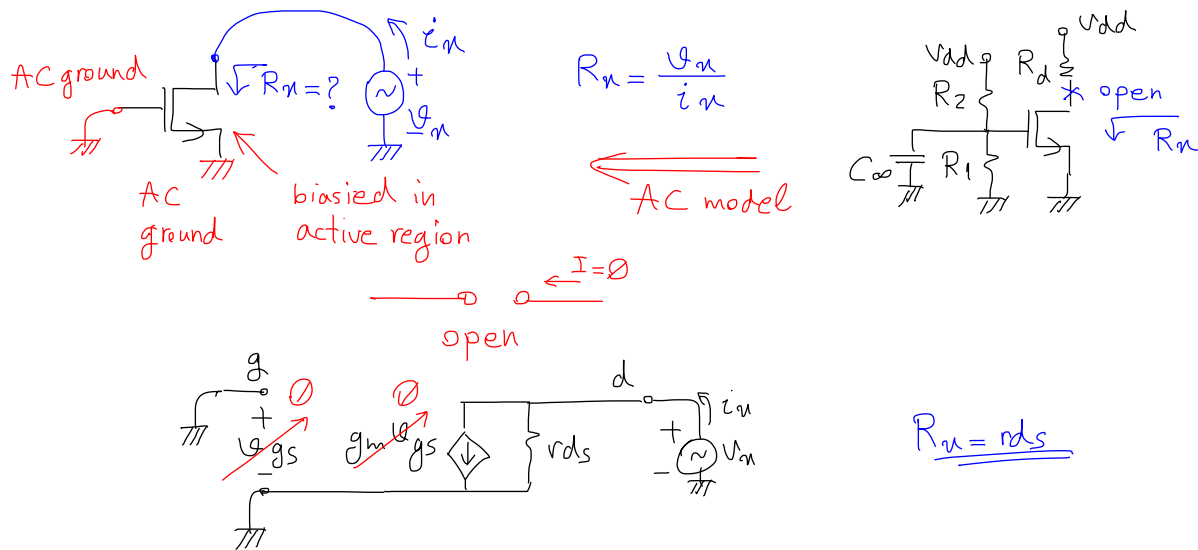 AC ground
Rx = ?
ix
+
vx
-
AC
ground
biasied in
active region
Rx = vx / ix
AC model
Vdd
Vdd
Rd
R2
open
Rx
C∞
R1
I=∅
open
g
∅
∅
d
ix
+
vgs
-
gm vgs
rds
+
vx
-
Rx = rds